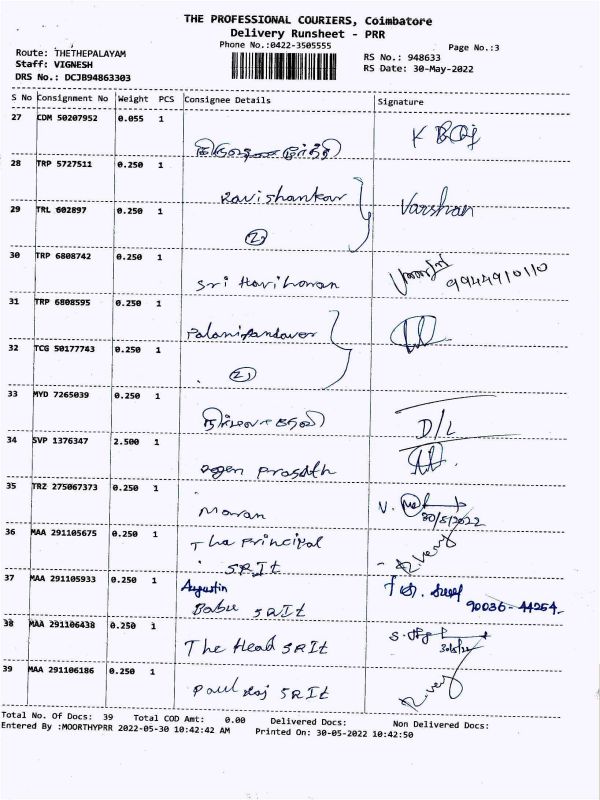 THE PROFESSIONAL COURIERS, Coimbatore
Delivery Runsheet - PRR
Phone No.:0422-3505555
Page No.:3
Route: THETHEPALAYAM
Staff: VIGNESH
DRS No.: DCJB94863303
RS No.: 948633
RS Date: 30-May-2022
S No Consignment No Weight PCS Consignee Details Signature
27 CDM 50207952 0.055 1
28 TRP 5727511 0.250 1
Ravishankar Varshan
29 TRL 602897 0.250 1
2
30 TRP 6808742 0.250 1
Sri Hariharan 9944910110
31 TRP 6808595 0.250 1
Palanipandaver
32 TCG 50177743 0.250 1
2
33 MYD 7265039 0.250 1
நிர்மலாதேவி D/L
34 SVP 1376347 2.500 1
Prasath
35 TRZ 275067373 0.250 1
Maran 30/5/2022
36 MAA 291105675 0.250 1
The Principal
SRIt
37 MAA 291105933 0.250 1
Augustin
Babu SRIt 90036-44254
38 MAA 291106438 0.250 1
The Head SRIt
39 MAA 291106186 0.250 1
Paul Raj SRIt
Total No. Of Docs: 39 Total COD Amt: 0.00 Delivered Docs: Non Delivered Docs:
Entered By :MOORTHYPRR 2022-05-30 10:42:42 AM Printed On: 30-05-2022 10:42:50